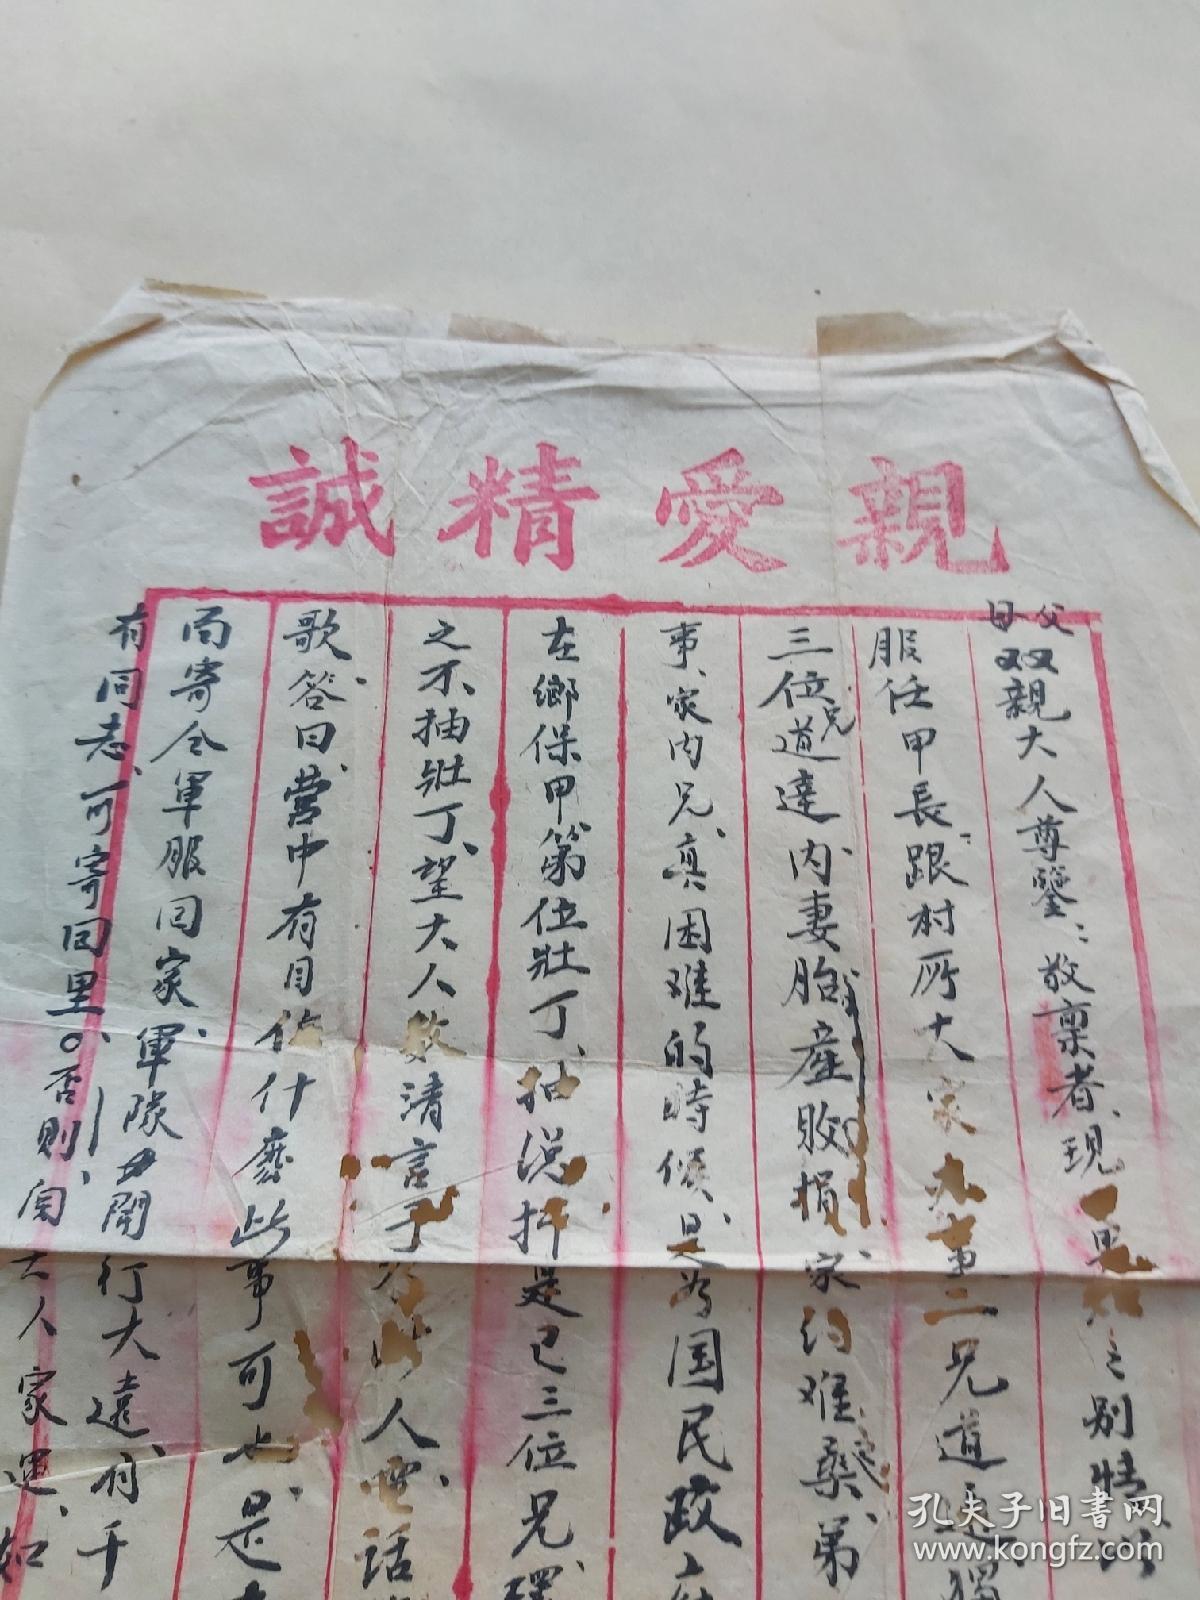 親愛精誠
父母双親大人尊鑒：敬稟者、現之別情、以
服任甲長、跟村所大家九事二兄道
三位兄道達、内妻胎產敗損、家約难桑、弟
事、家内兄、真困难的時候、是為国民政
在鄉保甲第位壯丁、抽説抨是已三位兄
之不抽壯丁、望大人數清言子人電話
歌、答曰、營中有目什麽此事可也、是
而寄仝軍服回家、軍隊開行大遠、有千
有同志、可寄回里。否則、大人家運、如
孔夫子旧書网
www.kongfz.com